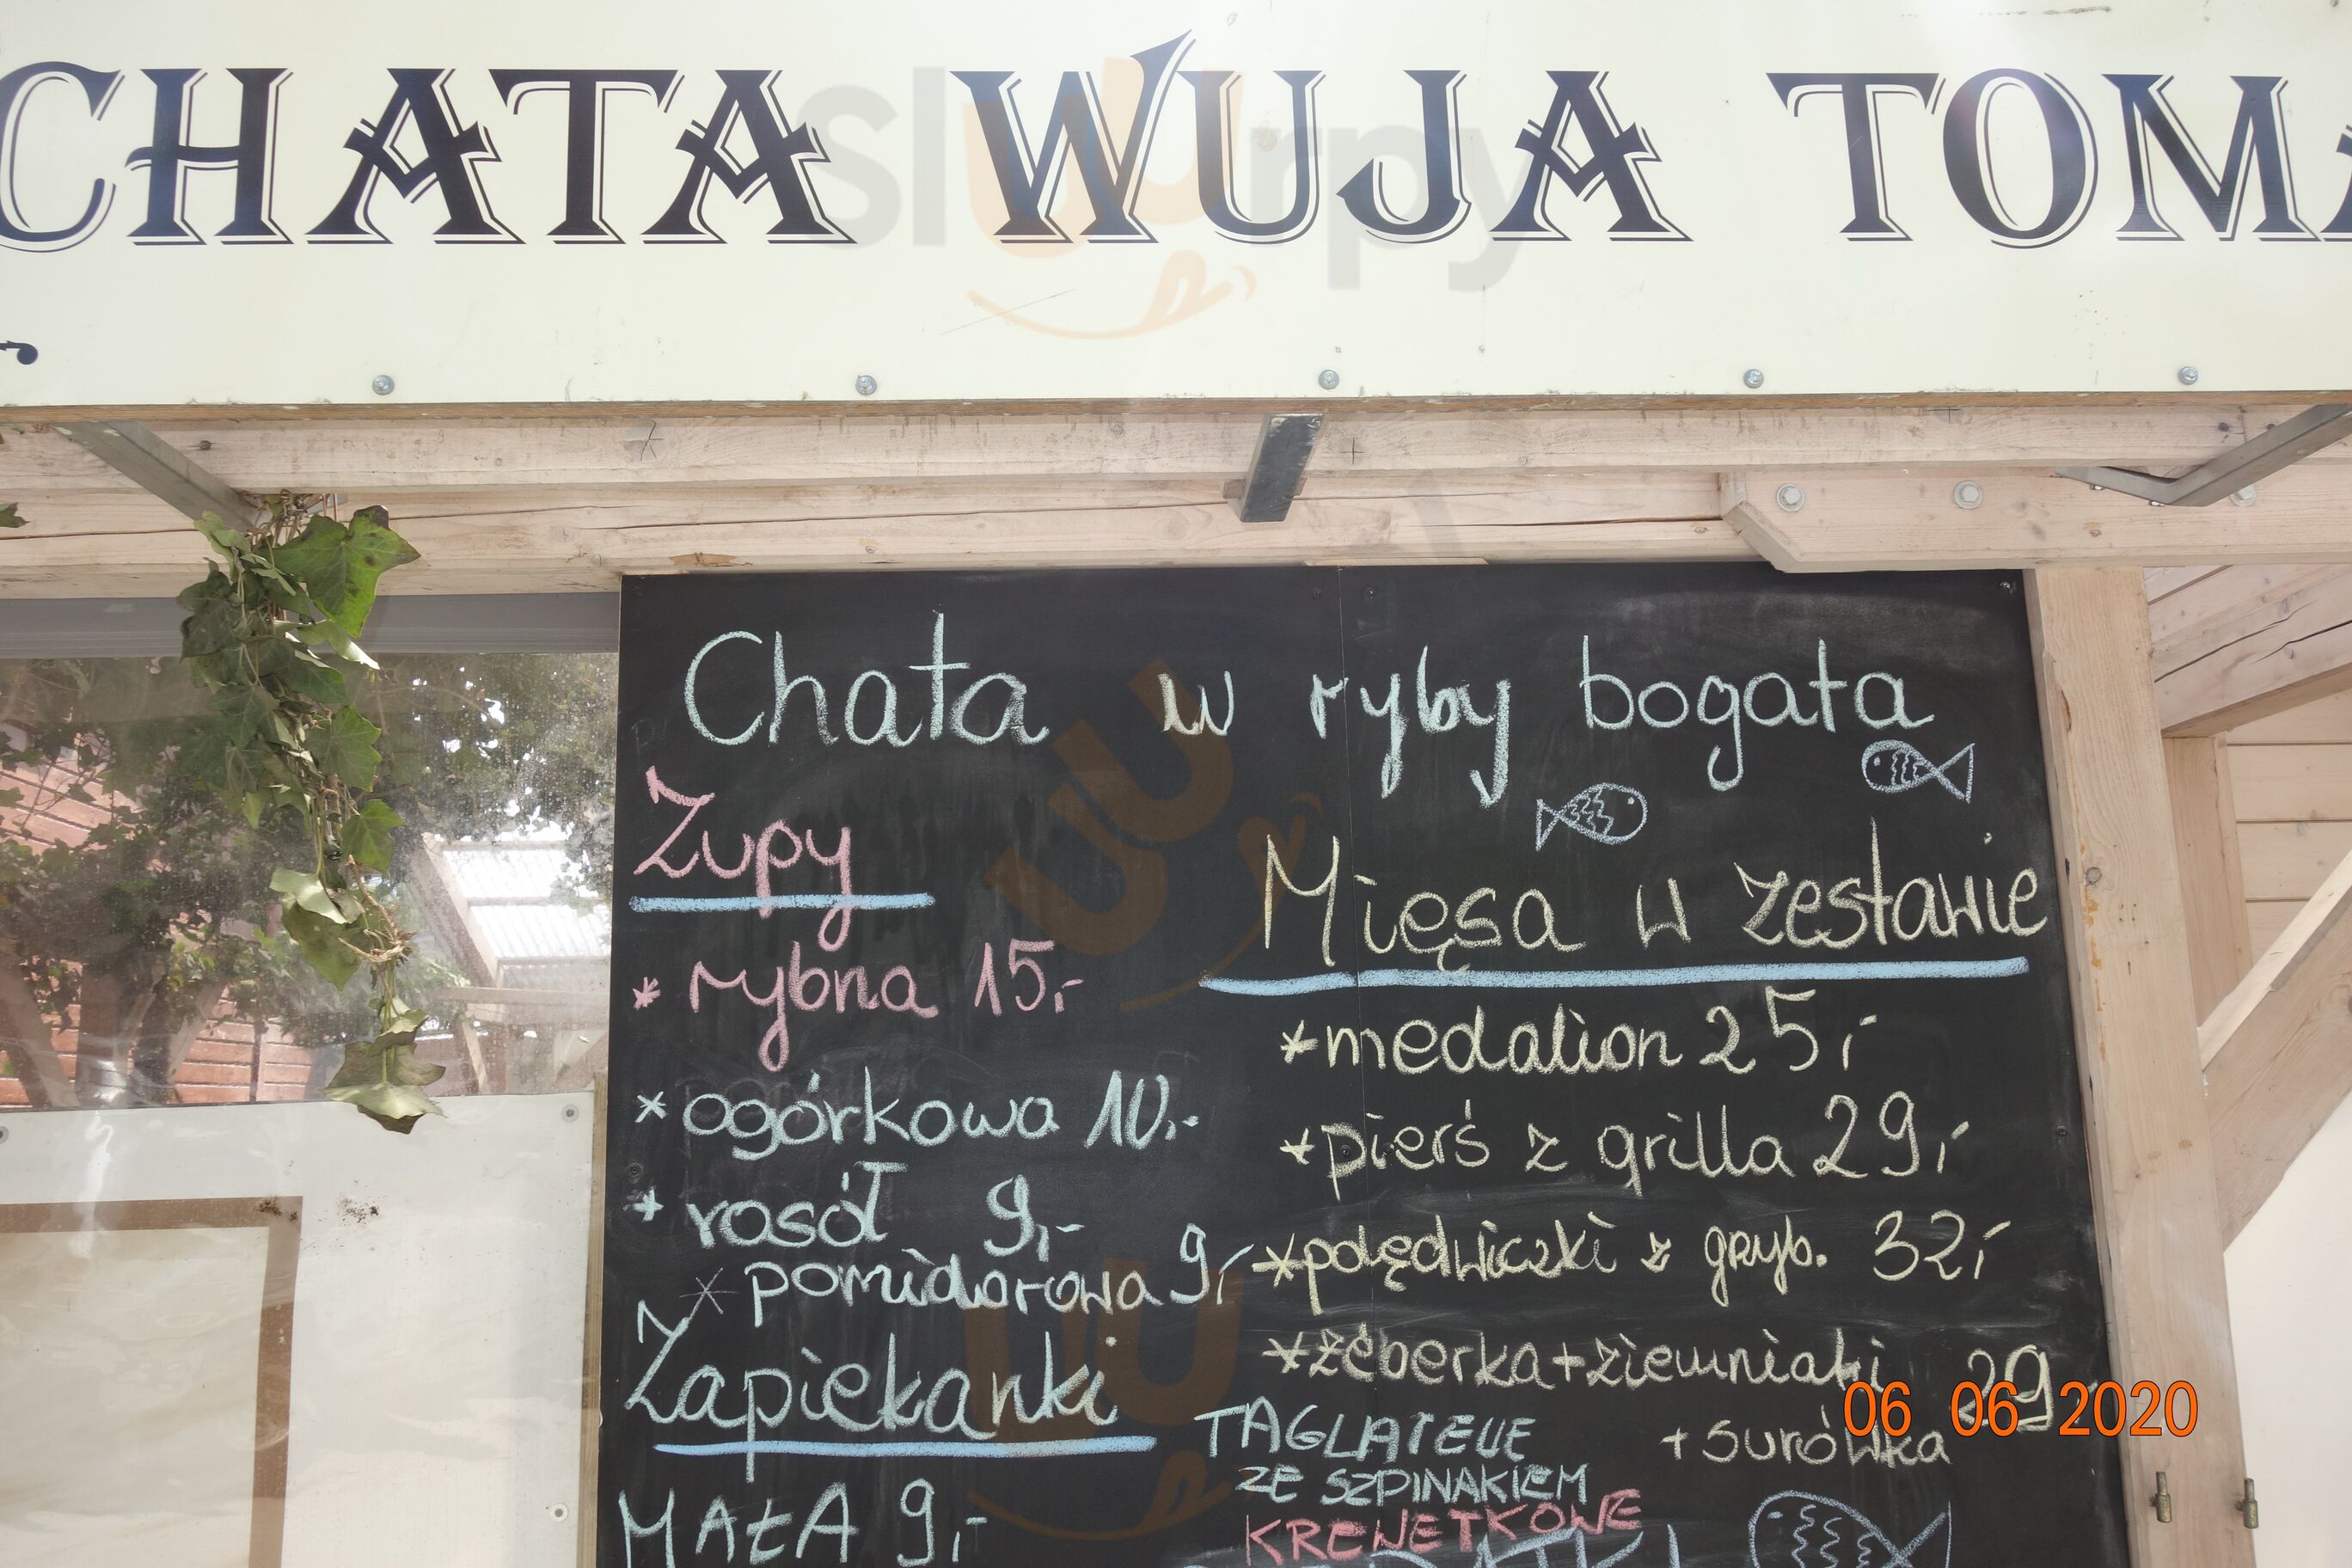 CHATA WUJA TOMA
Chata w ryby bogata
Zupy
* rybna 15,-
* ogórkowa 10,-
* rosół 9,-
* pomidorowa 9,-
Zapiekanki
MAŁA 9,-
Mięsa w zestawie
* medalion 25,-
* pierś z grilla 29,-
* polędwiczki z grzyb. 32,-
* żeberka + ziemniaki 29,-
+ surówka
TAGLIATELLE
ZE SZPINAKIEM
KREWETKOWE
06 06 2020
Sluurpy